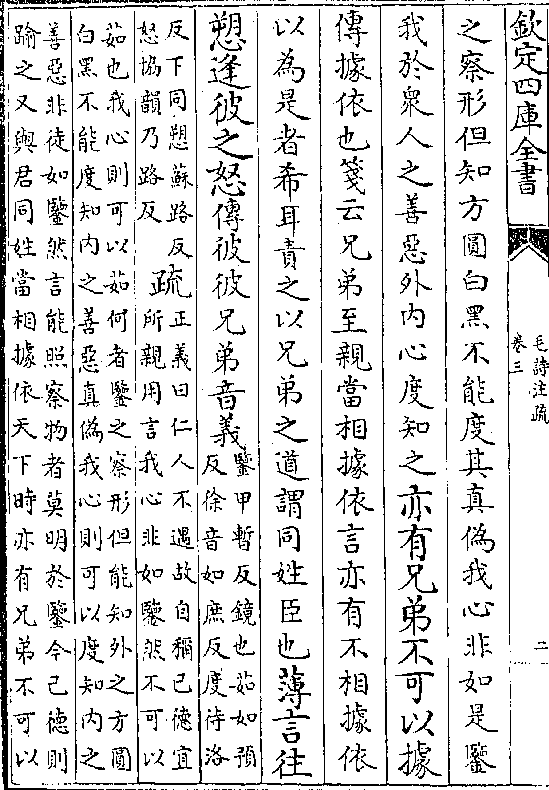 欽定四庫全書
毛詩注疏
卷三
二
之察形但知方圓白黑不能度其真偽我心非如是鑒
我於衆人之善惡外內心度知之亦有兄弟不可以據
傳據依也箋云兄弟至親當相據依言亦有不相據依
以為是者希耳責之以兄弟之道謂同姓臣也薄言往
愬逢彼之怒傳彼彼兄弟音義
鑒甲暫反鏡也茹如預
反徐音如庶反度待洛
反下同愬蘇路反
怒協韻乃路反
疏
正義曰仁人不遇故自稱己德宜
所親用言我心非如鑒然不可以
茹也我心則可以茹何者鑒之察形但能知外之方圓
白黑不能度知內之善惡真偽我心則可以度知內之
善惡非徒如鑒然言能照察物者莫明於鑒今己德則
踰之又與君同姓當相據依天下時亦有兄弟不可以